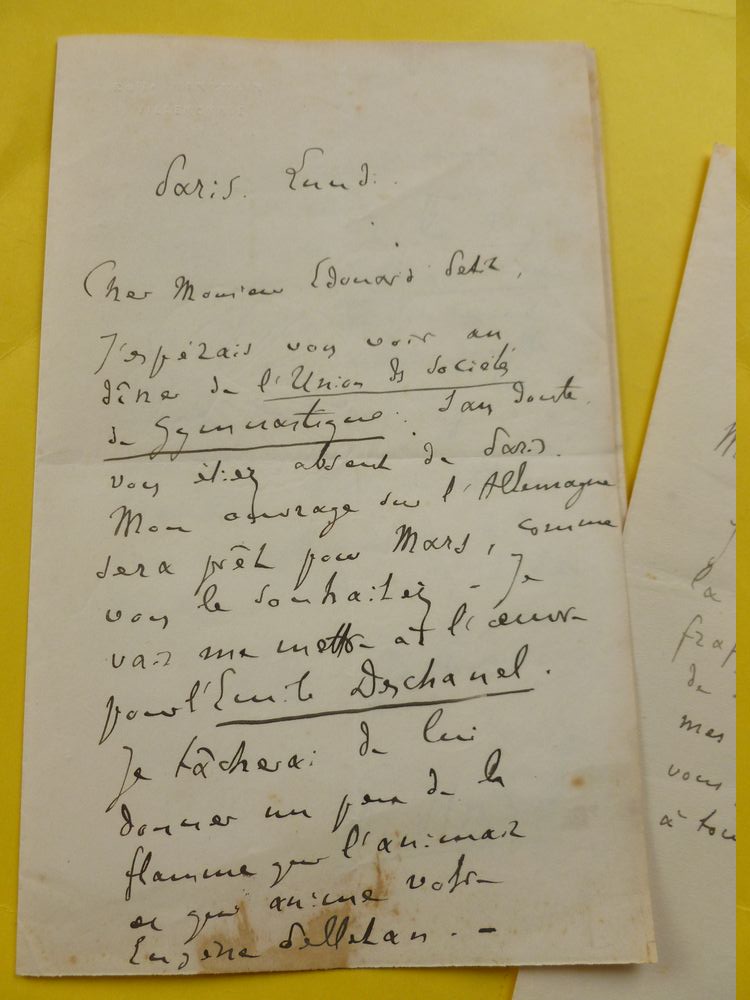 Paris. Lundi.
Cher Monsieur Edouard Petit,
J'espérais vous voir au
dîner de l'Union des Sociétés
de Gymnastique. Sans doute
vous étiez absent de Paris.
Mon ouvrage sur l'Allemagne
sera prêt pour Mars, comme
vous le souhaitez - Je
vais me mettre à l'œuvre
pour l'Emile Deschanel.
Je tâcherai de lui
donner un peu de la
flamme qui l'animait
et qui anime votre
Eugène Pelletan. -
la
de
mes
vous
à tou